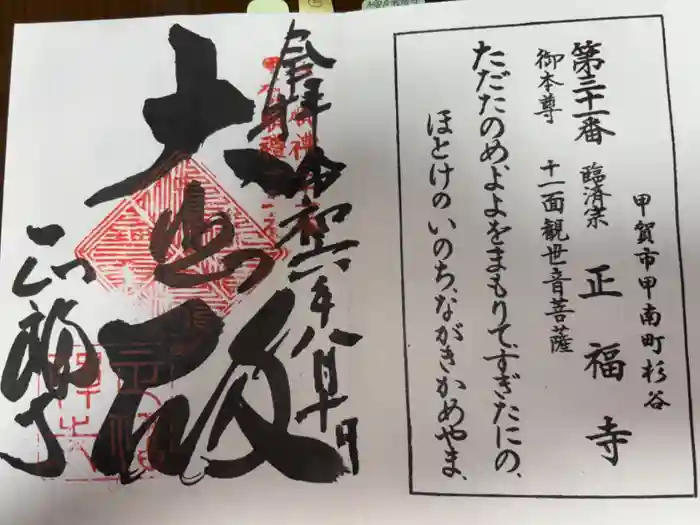 甲賀市甲南町杉谷
第三十一番 臨済宗 正福寺
御本尊 十一面観世音菩薩
ただたのめよよをまもりてすぎたにの、
ほとけのいのち、ながきかめやま、
奉拝 令和六年八月十日
大悲殿
正福寺